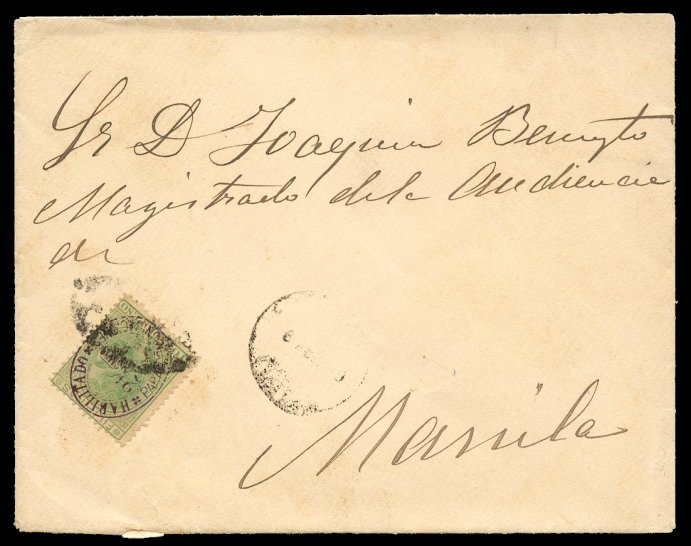 Sr D Joaquin Beneyto
Magistrado de la Audiencia
de
Manila
HABILITADO